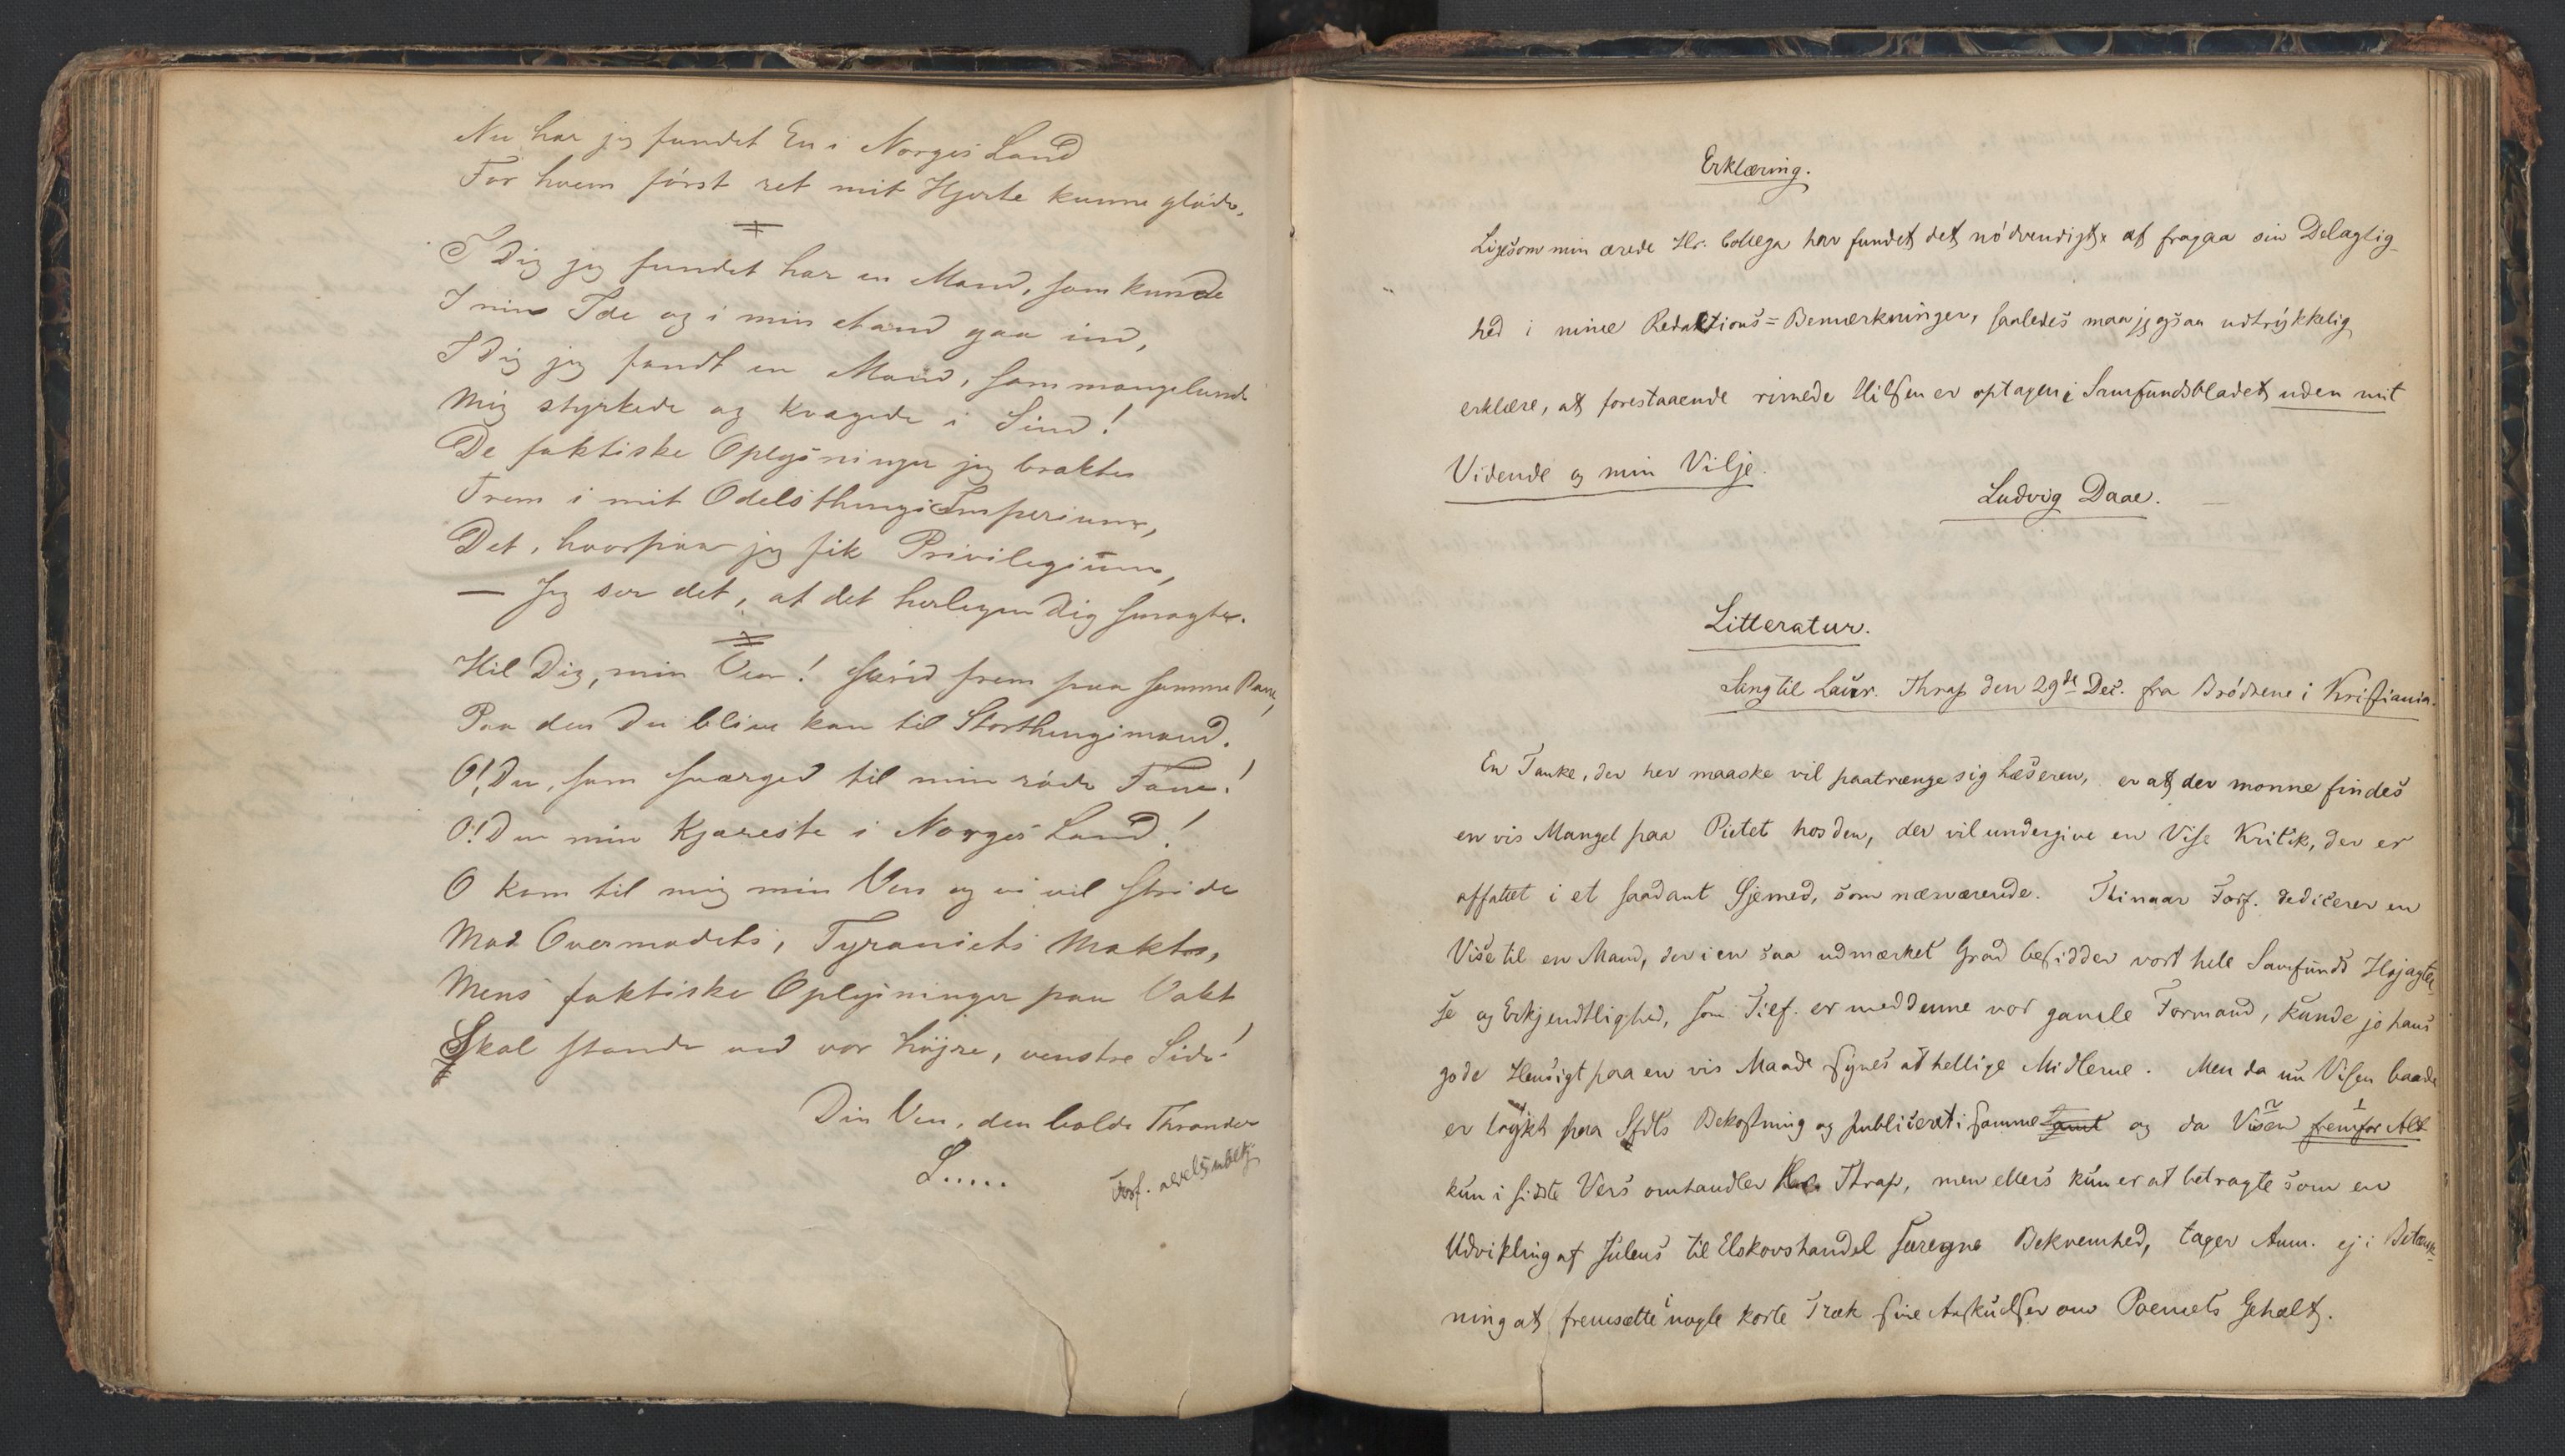 Nu har jeg fundet En i Norges Land
For hvem först ret mit Hjerte kunne glöde.
I Dig jeg fundet har en Mand, som kunde
I min Ide og i min Aand gaa ind,
I Dig jeg fandt en Mand, som mangelunde
Mig styrkede og kvægede i Sind!
De faktiske Oplysninger jeg bragte
Frem i mit Odelsthings Imperium,
Det, hvorpaa jeg fik Privilegium,
— Jeg ser det, at det herligen Dig smagte.
Hil Dig, min Ven! Skrid frem paa samme Bane,
Paa den Du blive kan til Storthingsmand.
O! Du, som sværged til min röde Fane!
O! Du min Kjæreste i Norges Land!
O kom til mig min Ven og vi vil stride
Mod Overmodets, Tyraniets Makt,
Mens faktiske Oplysninger paa Vakt
Skal stande ved vor höjre, venstre Side!
Din Ven, den bolde Thronder
L.....
Forf.
Erklæring.
Ligesom min ærede Hr. Collega har fundet det nödvendigt at fragaa sin Delagtig-
hed i mine Redaktions=Bemærkninger, saaledes maa jeg ogsaa udtrykkelig
erklære, at forestaaende rimede Hilsen er optagen i Samfundsbladet uden mit
Vidende og min Vilje.
Ludvig Daae.
Litteratur.
Sang til Laur. Thrap den 29de Dec. fra Brödrene i Kristiania.
En Tanke, der her maaske vil paatrænge sig Læseren, er at der monne findes
en vis Mangel paa Pietet hos den, der vil undergive en Vise Kritik, der er
affattet i et saadant Öjemed, som nærværende. Thi naar Forf. dedicerer en
Vise til en Mand, der i en saa udmærket Grad besidder vort hele Samfunds Højagtel-
se og Erkjendtlighed, som Tilf. er med denne vor gamle Formand, kunde jo hans
gode Hensigt paa en vis Maade synes at hellige Midlerne. Men da nu Visen baade
er trykt paa Sfdts Bekostning og publiceret i samme samt og da Visen fremfor Alt
kun i sidste Vers omhandler Thrap, men ellers kun er at betragte som en
Udvikling af Julens til Elskovshandel særegne Bekvemhed, tager Anm. ej i Betænk-
ning at fremsætte i nogle korte Træk sine Anskuelser om Poemets Gehalt.